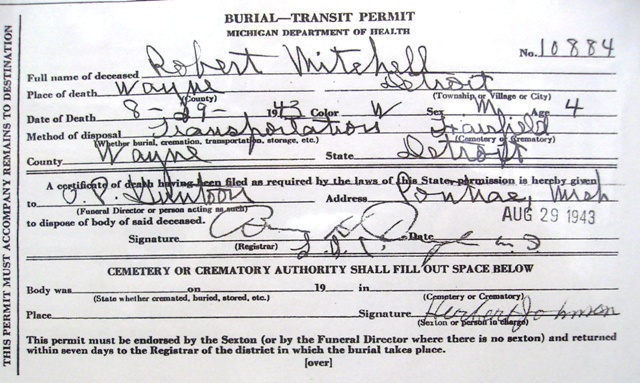 THIS PERMIT MUST ACCOMPANY REMAINS TO DESTINATION
BURIAL—TRANSIT PERMIT
MICHIGAN DEPARTMENT OF HEALTH
No. 10884
Full name of deceased Robert Mitchell
Place of death Wayne Detroit
(County) (Township, or Village or City)
Date of Death 8-29- 1943 Color W Sex M Age 4
Method of disposal Transportation Fairfield
(Whether burial, cremation, transportation, storage, etc.) (Cemetery or Crematory)
County Wayne State Detroit
A certificate of death having been filed as required by the laws of this State, permission is hereby given
to O.P. Address Pontiac, Mich
(Funeral Director or person acting as such)
AUG 29 1943
to dispose of body of said deceased.
Signature Date
(Registrar)
CEMETERY OR CREMATORY AUTHORITY SHALL FILL OUT SPACE BELOW
Body was on 19 in
(State whether cremated, buried, stored, etc.) (Cemetery or Crematory)
Place Signature Herbert Johnson
(Sexton or person in charge)
This permit must be endorsed by the Sexton (or by the Funeral Director where there is no sexton) and returned
within seven days to the Registrar of the district in which the burial takes place.
[over]